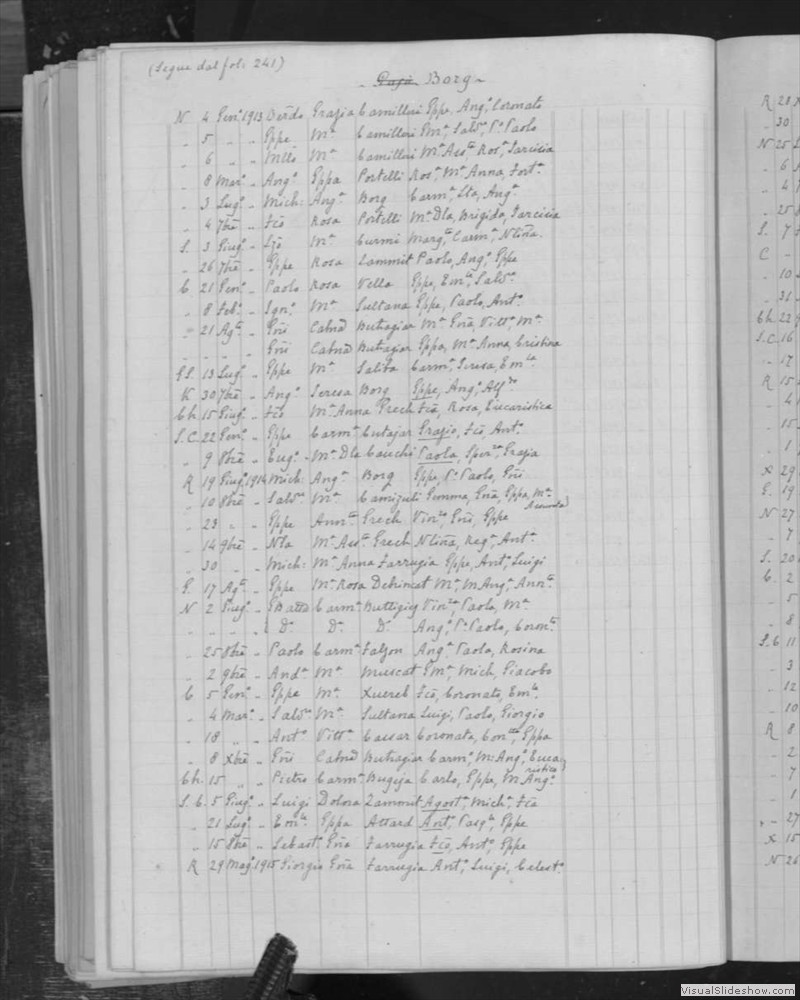 (Segue dal fol: 241)
Borg
N 4 Genº 1913 Berdo Grazia Camilleri Gppe, Angº, Coronato
" 5 " " Gppe Mª Camilleri Emª, Salvª, Pª Paolo
" 6 " " Mllo Mª Camilleri Mª Assᵗᵃ, Rosª, Tarcisia
" 8 Marº " Angº Gppa Portelli Rosª, Mª Anna, Fortª
" 3 Lugº " Mich: Angª Borg Carmª, Sta, Angª
" 4 7bre " Fcõ Rosa Portelli Mª Dla, Brigida, Tarcisia
S. 3 Giugº " Mª Curmi Margᵗᵃ, Carmª, Ntina
" 26 7bre " Gppe Rosa Zammit Paolo, Angº, Gppe
C 21 Genº " Paolo Rosa Vella Gppe, Emˡᵉ, Salvᵉ
" 8 Febº " Ignº Mª Sultana Gppe, Paolo, Antº
" 21 Agᵗᵒ " Gõi Cabnã Buttagiar Mª Gõa, Vittª, Mª
" " " " Gõi Cabnã Buttagiar Gppa, Mª Anna, Cristina
GS. 13 Lugº " Gppe Mª Saliba Carmª, Teresa, Emˡᵃ
K 30 7bre " Angº Teresa Borg Gppe, Angº, Alfᵈᵒ
Ch. 15 Giugº " Fcõ Mª Anna Grech Fcã, Rosa, Eucaristica
S.C. 22 Genº " Gppe Carmª Cutajar Grazio, Fcõ, Antº
" 9 8bre " Eugº Mª Dla Cauchi Paola, Sperᶻᵃ, Grazia
R 19 Giugº 1914 Mich: Angª Borg Gppe, Pª Paolo, Gõi
" 10 8bre " Salvᵉ Mª Camizuli Gemma, Gõa, Gppa, Mª Assunta
" 23 " " Gppe Annᵗᵃ Grech Vinᶻᵒ, Gõi, Gppe
" 14 9bre " Nla Mª Assᵗᵃ Grech Ntina, Regª, Antª
" 30 " " Mich: Mª Anna Farrugia Gppe, Antº, Luigi
G. 17 Agᵗᵒ " Gppe Mª Rosa Debrincat Mª, M Angª, Annᵗᵃ
N 2 Giugº " GBatta Carmª Buttigieg Vinᶻᵃ Paola, Mª
" " " " Dº Dª Dº Angª, Pª Paola, Coronᵗᵃ
" 25 8bre " Paolo Carmª Falzon Angª Paola, Rosina
" 2 9bre " Andª Mª Muscat Emª, Mich, Giacobo
C 5 Genº " Gppe Mª Xuereb Fcõ, Coronato, Emˡᵉ
" 4 Marº " Salvᵉ Mª Sultana Luigi, Paolo, Giorgio
" 18 " " Antº Vittª Cassar Coronata, Gppa
" 8 Xbre " Gõi Cabnã Buttagiar Carmª, M: Angª, Eucaristica
Ch. 15 " " Pietro Carmª Bugeja Carlo, Gppe, M: Angº
S.C. 5 Giugº " Luigi Dolora Zammit Agostº, Michˡ, Fcã
" 21 Lugº " Emˡᵉ Gppa Attard Antº, Pasqˡᵉ, Gppe
" 15 8bre " Sebastº Gõa Farrugia Fcõ, Antº, Gppe
R 29 Magº 1915 Giorgio Gõa Farrugia Antº, Luigi, Celestº
R 28
" 30
N 25
" 6
" 4
" 25
S. 7
C "
" 10
" 31
Ch 22
S.C. 16
" 17
R 15
" 4
" 15
" 1
X 29
G. 19
N 27
" 7
S. 20
C. 2
" 5
" 8
S.C 11
" 3
" 12
" 10
R 8
" 2
" 7
" 1
" 27
X 15
N 26
VisualSlideshow.com